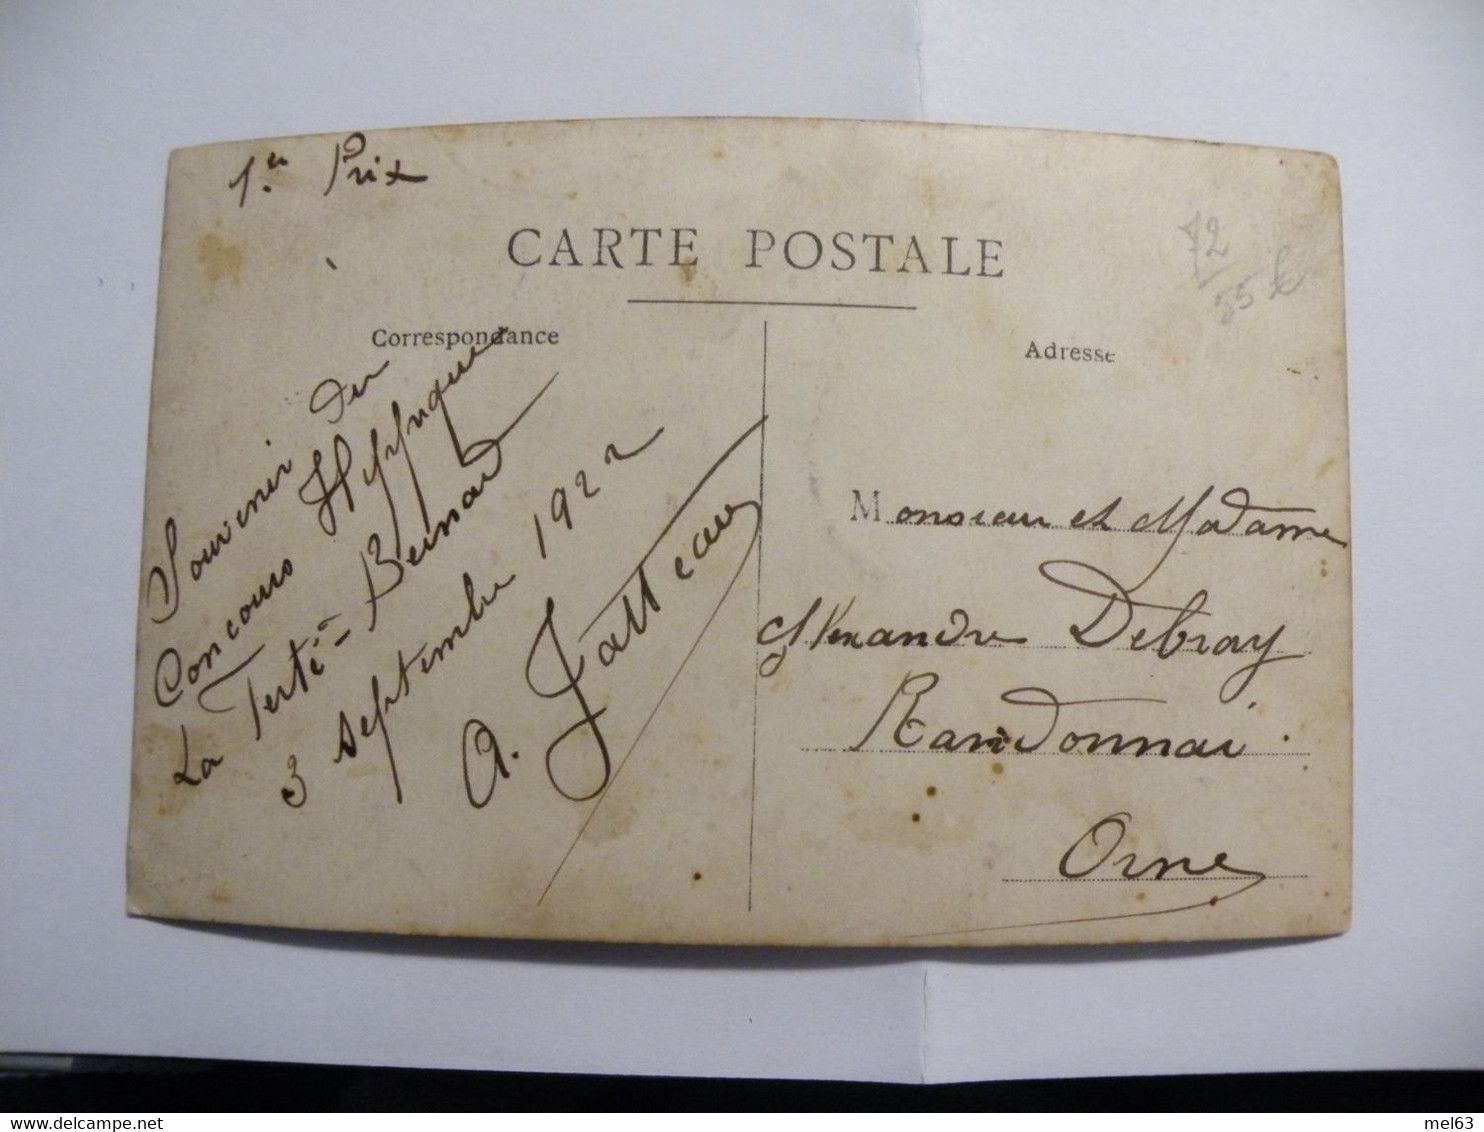 1.er Prix
CARTE POSTALE
72
55 €
Correspondance
Souvenir du
Concours Hyppique
La Ferté-Bernard
3 septembre 1922
A.
Adresse
Monsieur et Madame
Alexandre Debray
Randonnai.
Orne
mel63